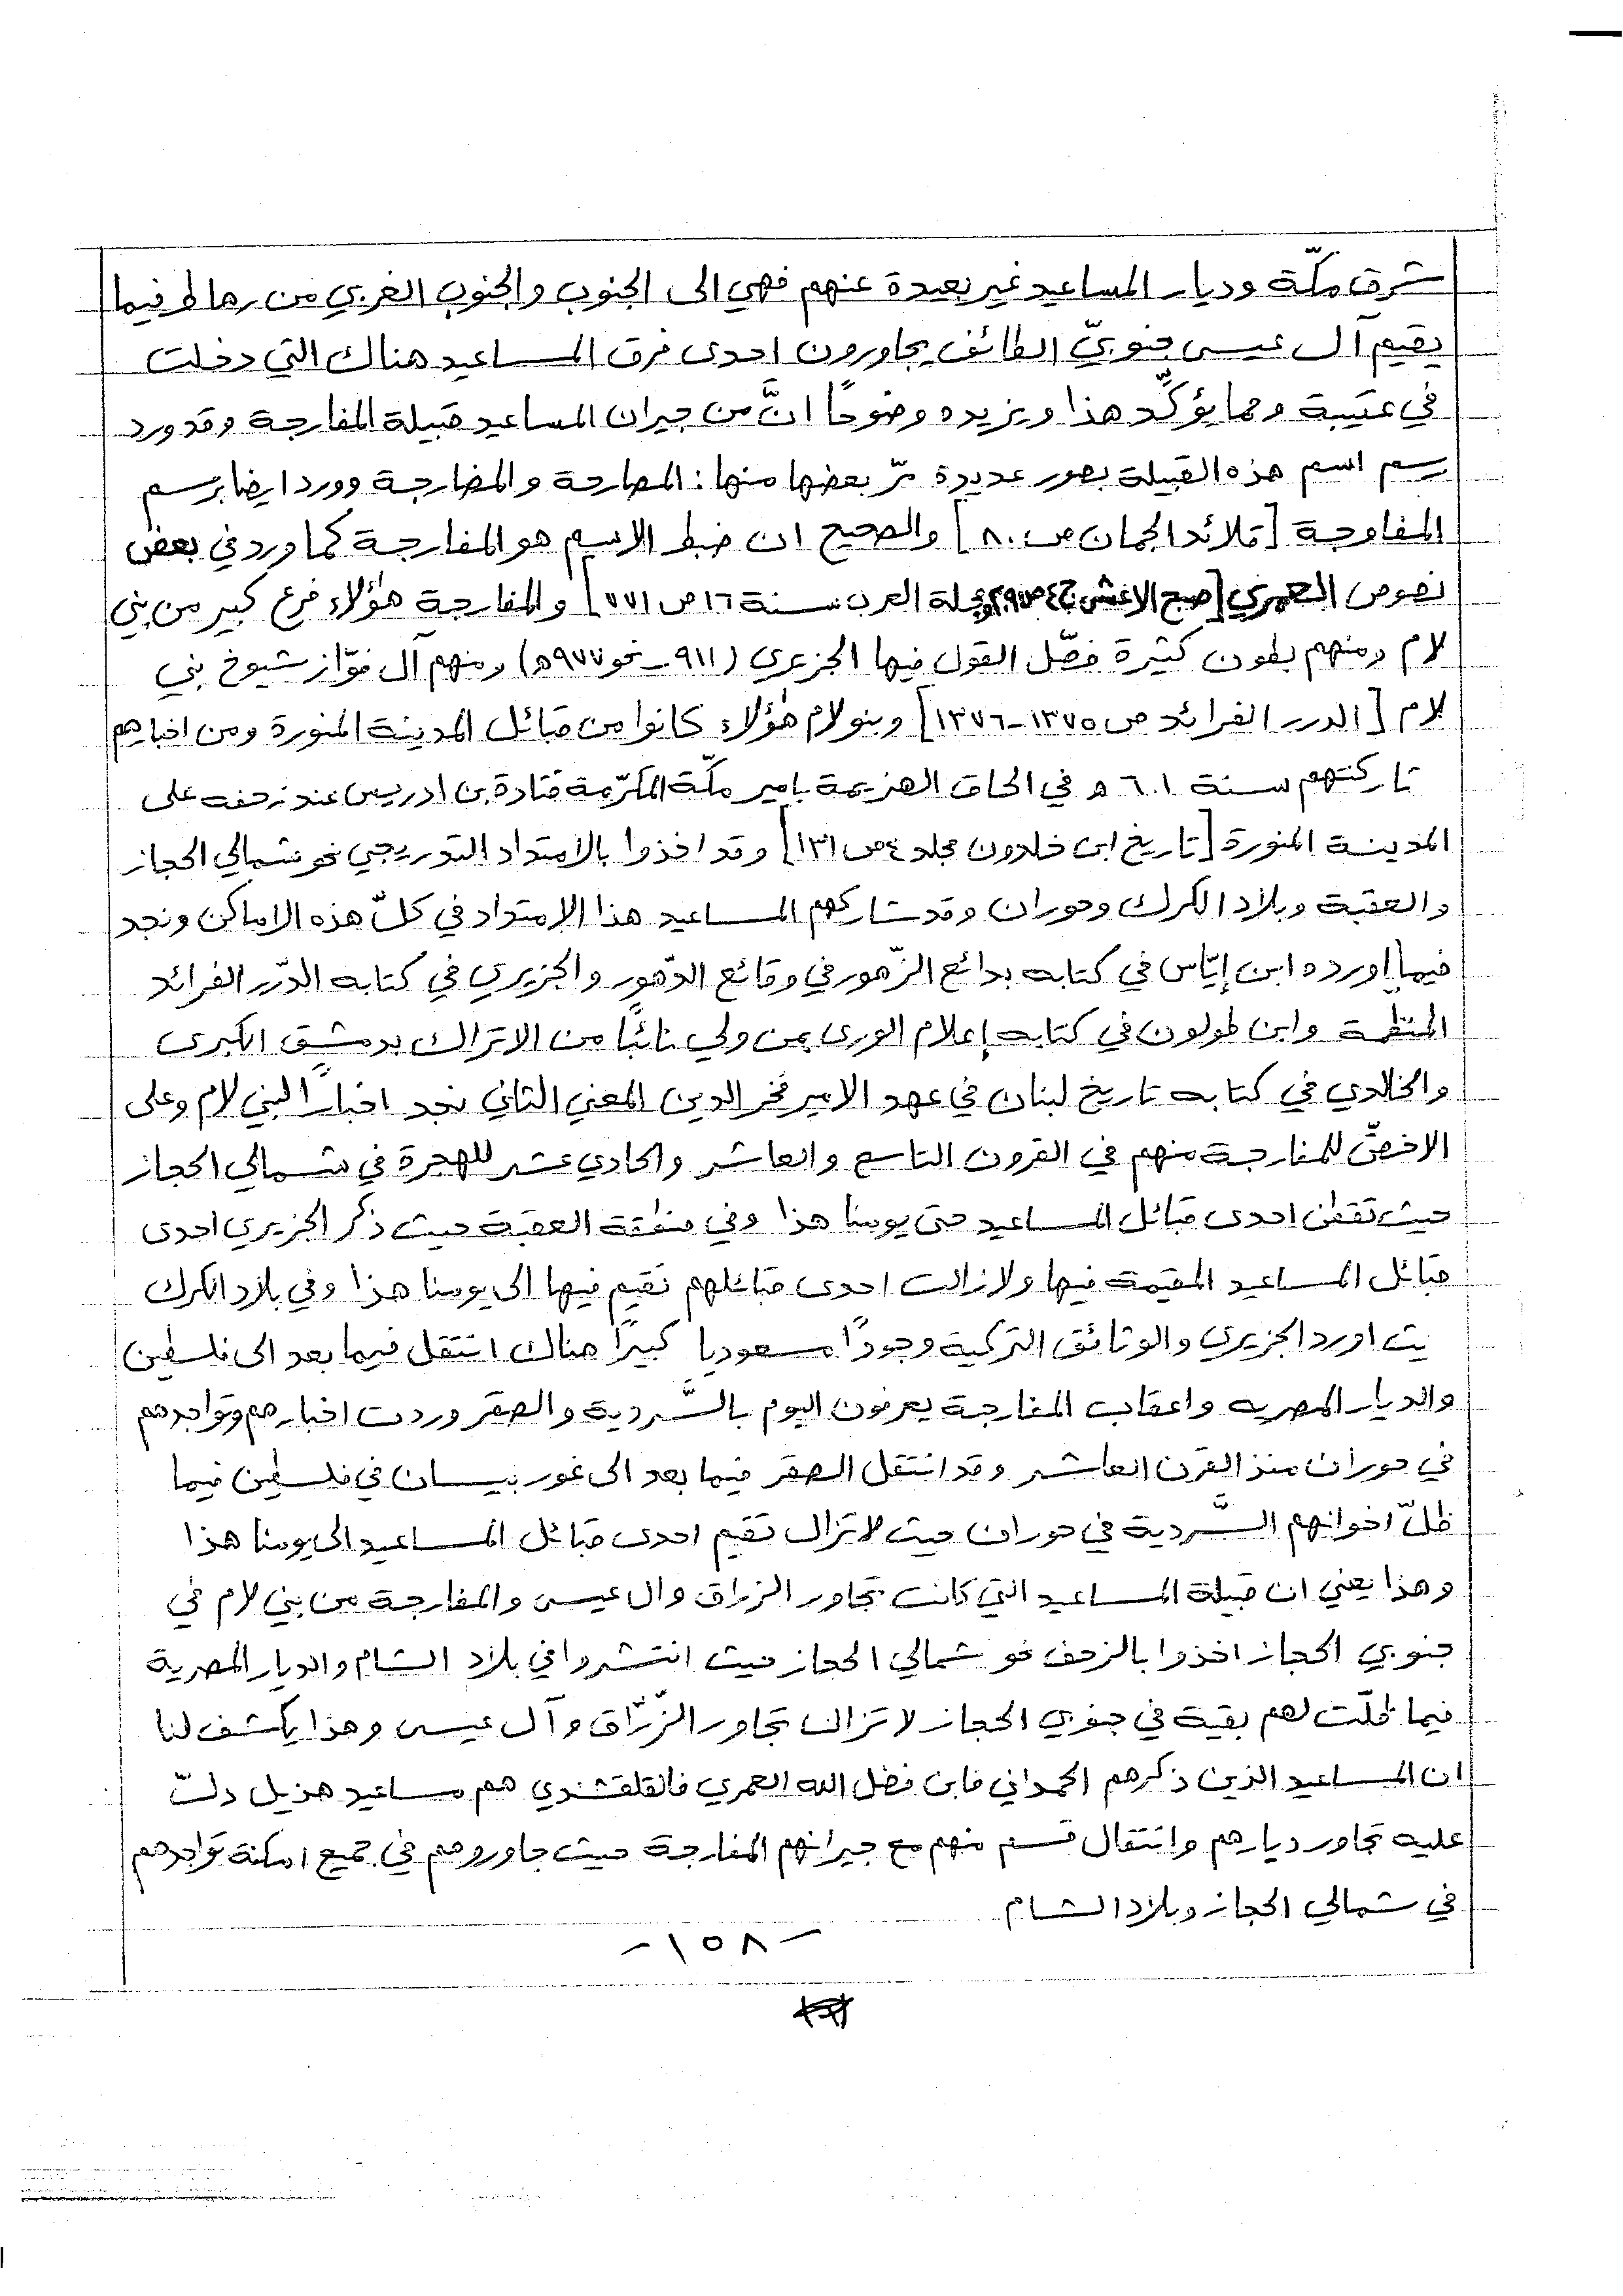 شرق مكّة وديار المساعيد غير بعيدة عنهم فهي الى الجنوب والجنوب الغربي من رهاط فيما
يقيم آل عيسى جنوبيّ الطائف يجاورون احدى فرق المساعيد هناك التي دخلت
في عتيبة ومما يؤكّد هذا ويزيده وضوحًا انَّ من جيران المساعيد قبيلة المفارجة وقد ورد
رسم اسم هذه القبيلة بصور عديدة مرّ بعضها منها : المصارحة والمضارجة وورد ايضا برسم
المفاوجة [قلائد الجمان ص ٨٠] والصحيح ان ضبط الاسم هو المفارجة كما ورد في بعض
نصوص العمري [صبح الاعشى ج٤ ص مجلة العرب سنة ١٦ ص ٧٧١] والمفارجة هؤلاء فرع كبير من بني
لام ومنهم بطون كثيرة فصّل القول فيها الجزيري (٩١١ - نحو ٩٧٧ه) ومنهم آل فوّاز شيوخ بني
لام [الدرر الفرائد ص ١٣٧٥-١٣٧٦] وبنو لام هؤلاء كانوا من قبائل المدينة المنورة ومن اخبارهم
تاركتهم سنة ٦٠١ ه في الحاق الهزيمة بامير مكّة المكرّمة قتادة بن ادريس عند زحفه على
المدينة المنورة [تاريخ ابن خلدون مجلد ٤ ص ١٣١] وقد اخذوا بالامتداد التدريجي نحو شمالي الحجاز
والعقبة وبلاد الكرك وحوران وقد شاركهم المساعيد هذا الامتداد في كلّ هذه الاماكن ونجد
فيما اورده ابن إيّاس في كتابه بدائع الزّهور في وقائع الدّهور والجزيري في كتابه الدّرر الفرائد
المنظمة وابن طولون في كتابه إعلام الورى بمن ولي نائبًا من الاتراك بدمشق الكبرى
والخالدي في كتابه تاريخ لبنان في عهد الامير فخر الدين المعني الثاني نجد اخبارًا لبني لام وعلى
الاخصّ للمفارجة منهم في القرون التاسع والعاشر والحادي عشر للهجرة في شمالي الحجاز
حيث تقطن احدى قبائل المساعيد حتى يومنا هذا وفي منطقة العقبة حيث ذكر الجزيري احدى
قبائل المساعيد المقيمة فيها ولازالت احدى قبائلهم تقيم فيها الى يومنا هذا وفي بلاد الكرك
يث اورد الجزيري والوثائق التركية وجودًا مسعوديا كبيرًا هناك انتقل فيما بعد الى فلسطين
والديار المصريه واعقاب المفارجة يعرفون اليوم بالسَّردية والصقر وردت اخبارهم وتواجدهم
في حوران منذ القرن العاشر وقد انتقل الصقر فيما بعد الى غور بيسان في فلسطين فيما
ظلّ اخوانهم السَّردية في حوران حيث لاتزال تقيم احدى قبائل المساعيد الى يومنا هذا
وهذا يعني ان قبيلة المساعيد التي كانت تجاور الزراق وال عيسى والمفارجة من بني لام في
جنوبي الحجاز اخذوا بالزحف نحو شمالي الحجاز حيث انتشروا في بلاد الشام والديار المصرية
فيما ظلّت لهم بقية في جنوبي الحجاز لا تزال تجاور الزّرّاق وآل عيسى وهذا يكشف لنا
ان المساعيد الذين ذكرهم الحمداني فابن فضل الله العمري فالقلقشندي هم مساعيد هذيل دلّ
عليه تجاور ديارهم وانتقال قسم منهم مع جيرانهم المفارجة حيث جاوروهم في جميع امكنة تواجدهم
في شمالي الحجاز وبلاد الشام
- ١٥٨ -